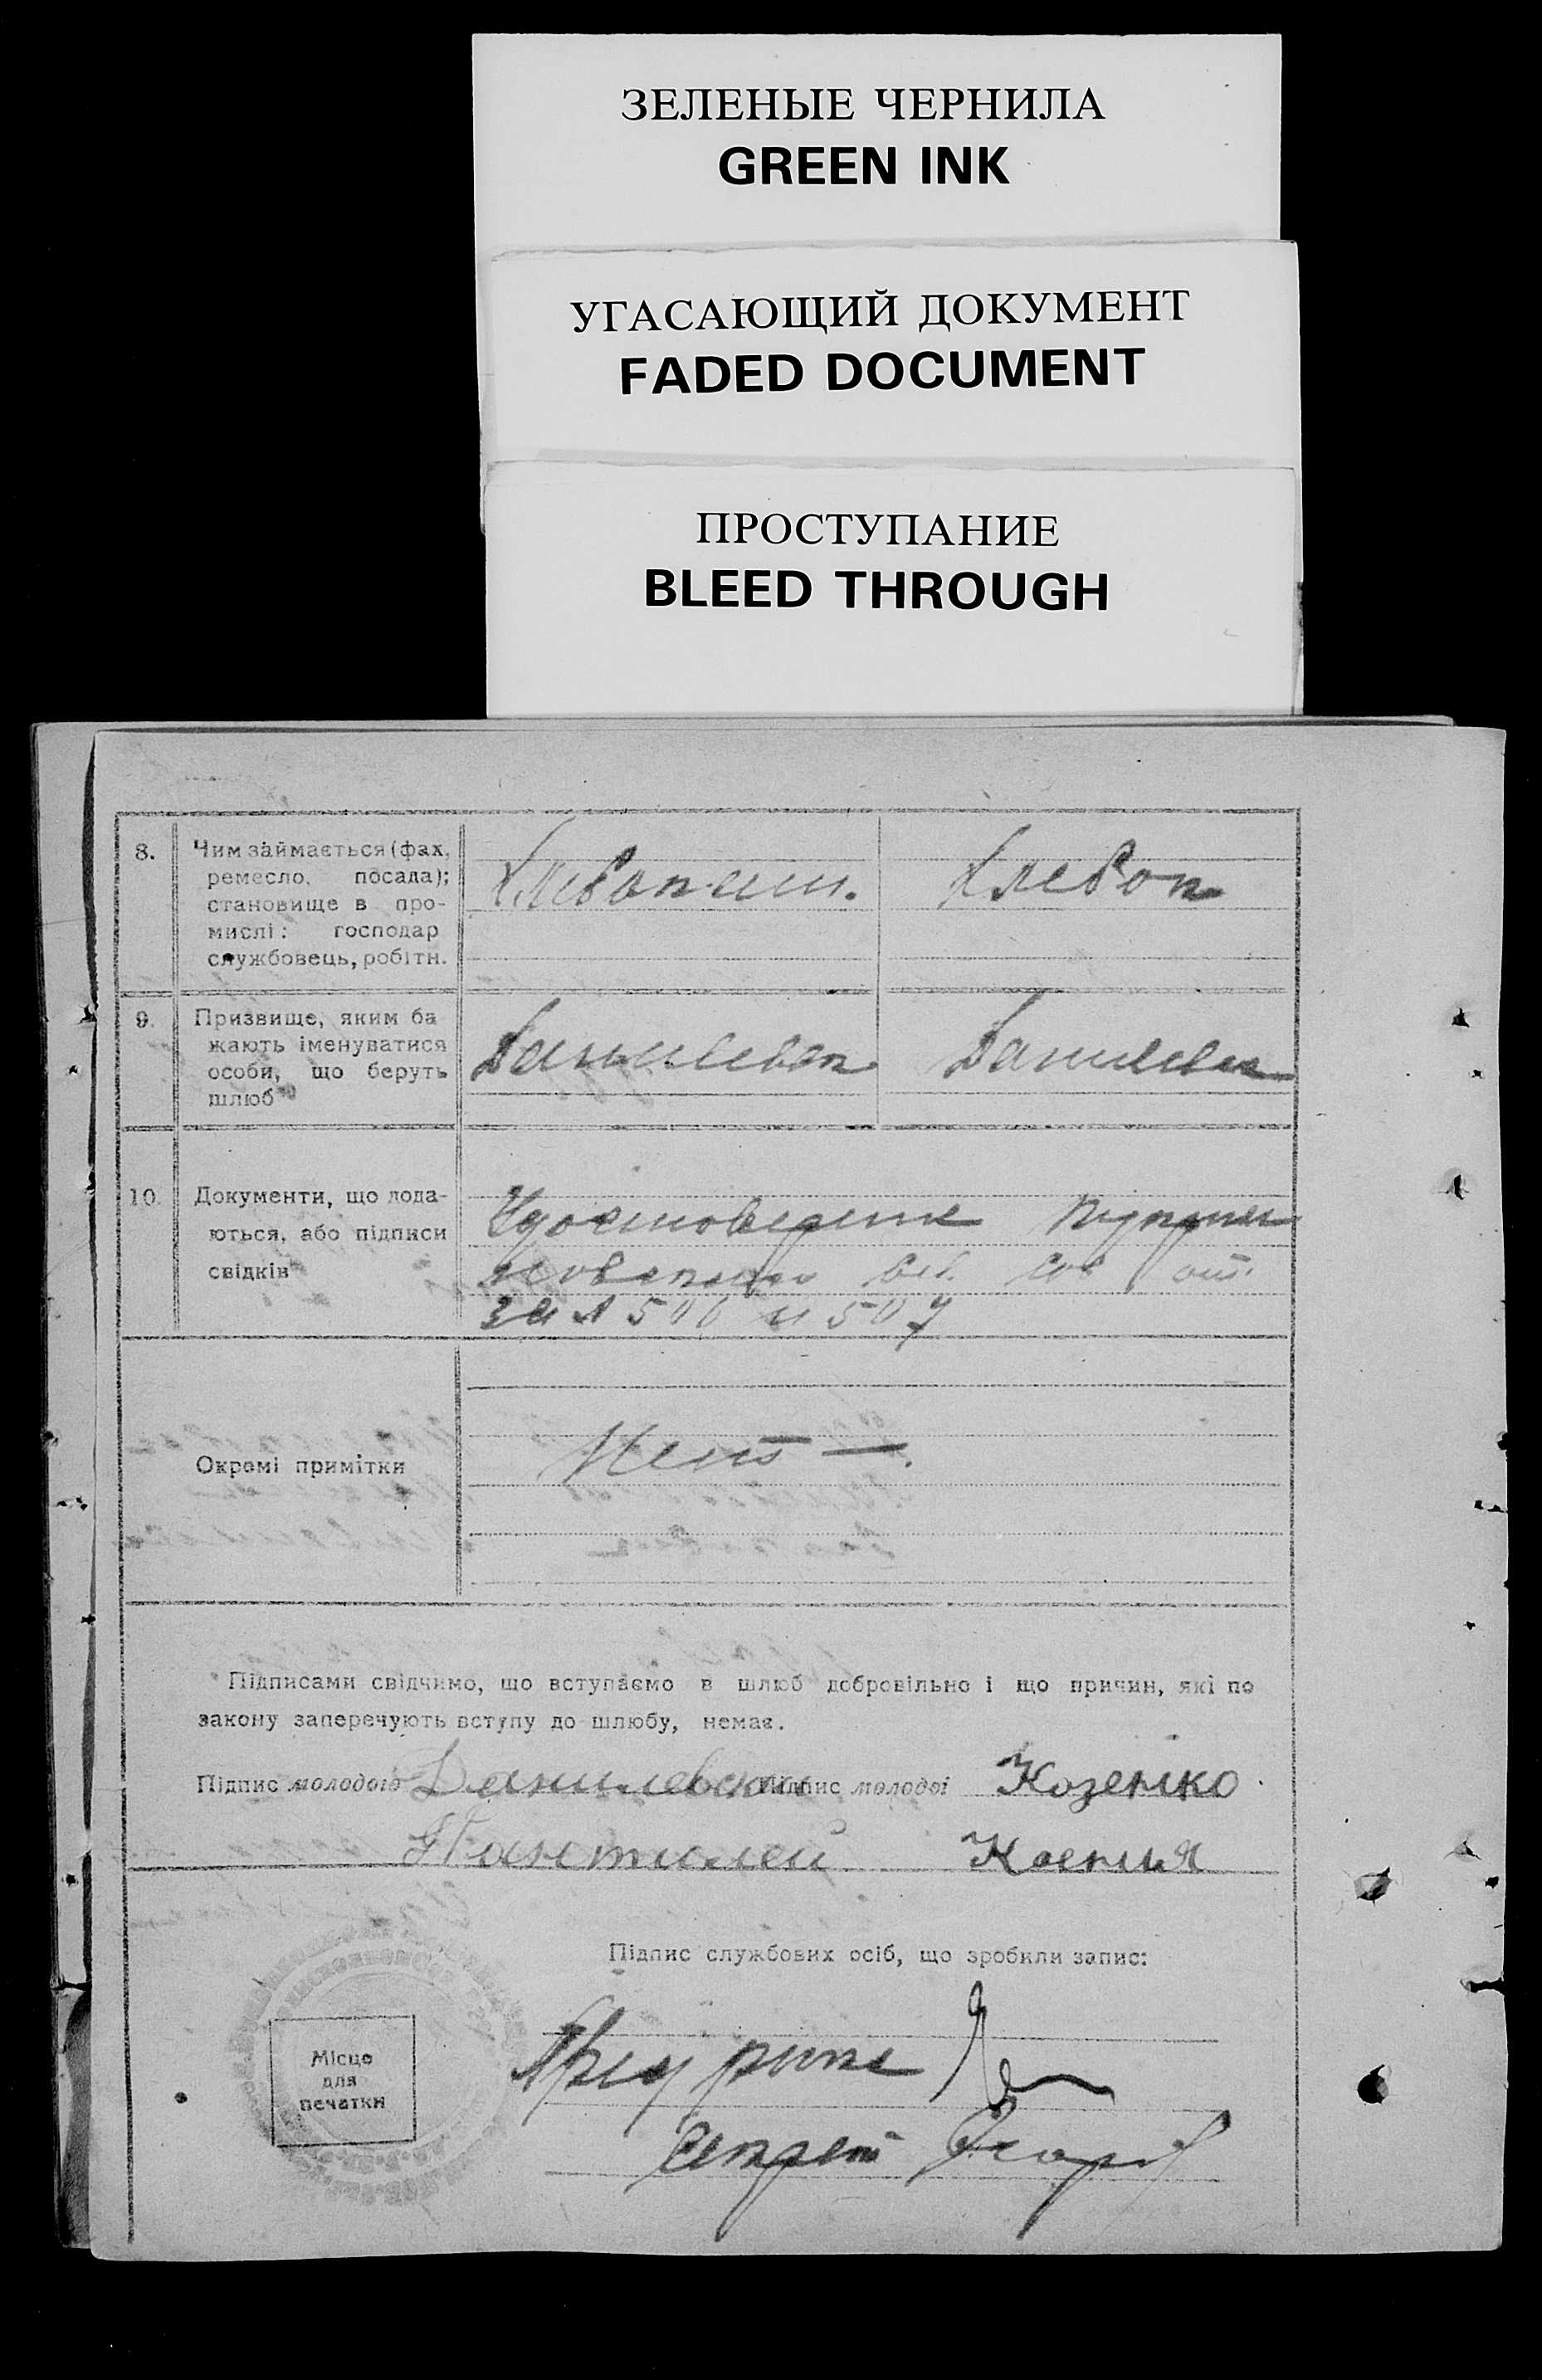 ЗЕЛЕНЫЕ ЧЕРНИЛА
GREEN INK
УГАСАЮЩИЙ ДОКУМЕНТ
FADED DOCUMENT
ПРОСТУПАНИЕ
BLEED THROUGH
8.
Чим займається (фах,
ремесло, посада);
становище в про-
мислі: господар
службовець, робітн.
Хлебопаш.
Хлебоп
9.
Призвище, яким ба
жають іменуватися
особи, що беруть
шлюб
Данилевск
Данилевск
10.
Документи, що дода-
ються, або підписи
свідків
Удостоверение
сов от
за № 506 и 507
Окремі примітки
Нет —.
Підписами свідчимо, що вступаємо в шлюб добровільно і що причин, які по
закону заперечують вступу до шлюбу, немає.
Підпис молодого Данилевский Підпис молодої Козенко
Пантилей Ксения
Підпис службових осіб, що зробили запис:
Місце
для
печатки
Секрет